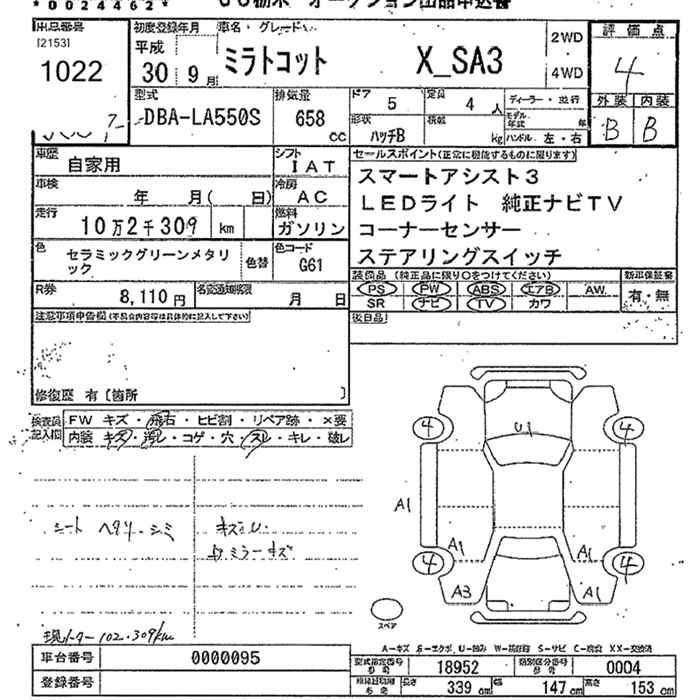 *0024462*
出品番号 [2153] 1022
初度登録年月 平成 30年 9月
車名・グレード ミラトコット X_SA3
2WD
4WD
評価点 4
外装 内装
B B
型式 DBA-LA550S
排気量 658 cc
ドア 5
定員 4 人
形状 ハッチB
積載 kg
ディーラー・並行
モデル年式 年
ハンドル 左・右
車歴 自家用
シフト IAT
車検 年 月( 日)
冷房 AC
走行 10万2千309 km
燃料 ガソリン
色 セラミックグリーンメタリック
色替
色コード G61
R券 8,110円
名変通知期限 月 日
セールスポイント(正常に機能するものに限ります)
スマートアシスト3
LEDライト 純正ナビTV
コーナーセンサー
ステアリングスイッチ
装備品 (純正品に限り○をつけてください)
新車保証書
PS PW ABS エアB AW
SR ナビ TV カワ
有・無
後日品
注意事項申告欄(不具合内容等は具体的に記入して下さい)
修復歴 有〔箇所 〕
検査員記入欄
FW キズ・飛石・ヒビ割・リペア跡・×要
内装 キズ・汚レ・コゲ・穴・スレ・キレ・破レ
シート ヘタリ・シミ
キズU.
ミラーキズ
現メーター 102.309km
U1
4 4
A1
A1
4 4
A3 A1
スペア
A-キズ E-エクボ U-凹み W-補修跡 S-サビ C-腐食 XX-交換済
車台番号 0000095
登録番号
型式指定番号 18952
類別区分番号 0004
長さ 339 cm 幅 147 cm 高さ 153 cm